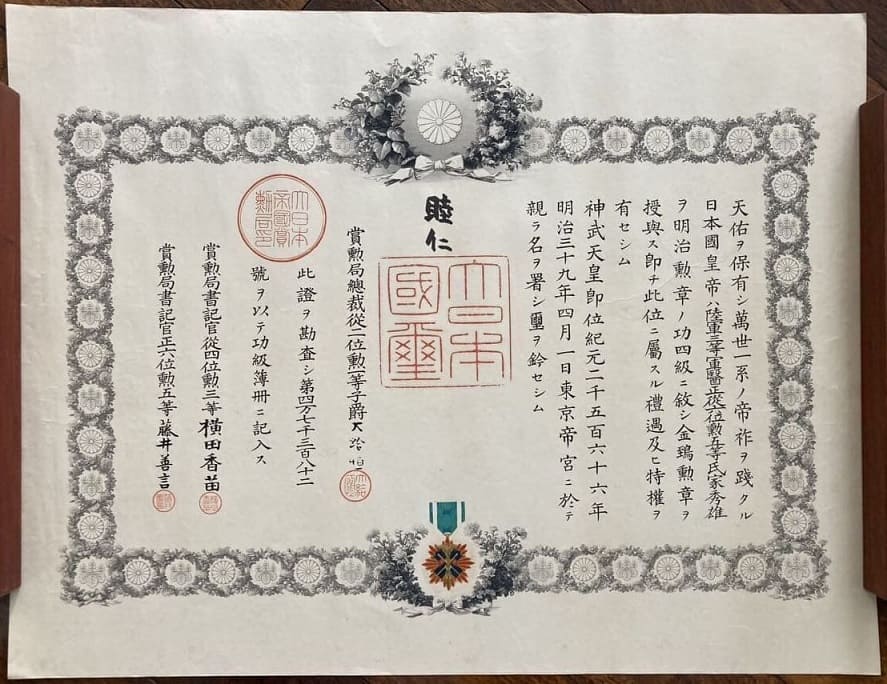 天佑ヲ保有シ萬世一系ノ帝祚ヲ踐タル
日本國皇帝ハ陸軍三等軍醫正從六位勲五等氏家秀雄
ヲ明治勲章ノ功四級ニ敘シ金鵄勲章ヲ
授與ス即チ此位ニ屬スル禮遇及ヒ特權ヲ
有セシム
神武天皇即位紀元二千五百六十六年
明治三十九年四月一日東京帝宮ニ於テ
親ラ名ヲ署シ璽ヲ鈐セシム
睦仁
大日本
國璽
賞勲局總裁從二位勲一等子爵大給恒
此證ヲ勘査シ第四万七千三百八十二
號ヲ以テ功級簿冊ニ記入ス
大日本
帝國賞
勲局印
賞勲局書記官從四位勲三等横田香苗
賞勲局書記官正六位勲五等藤井善言